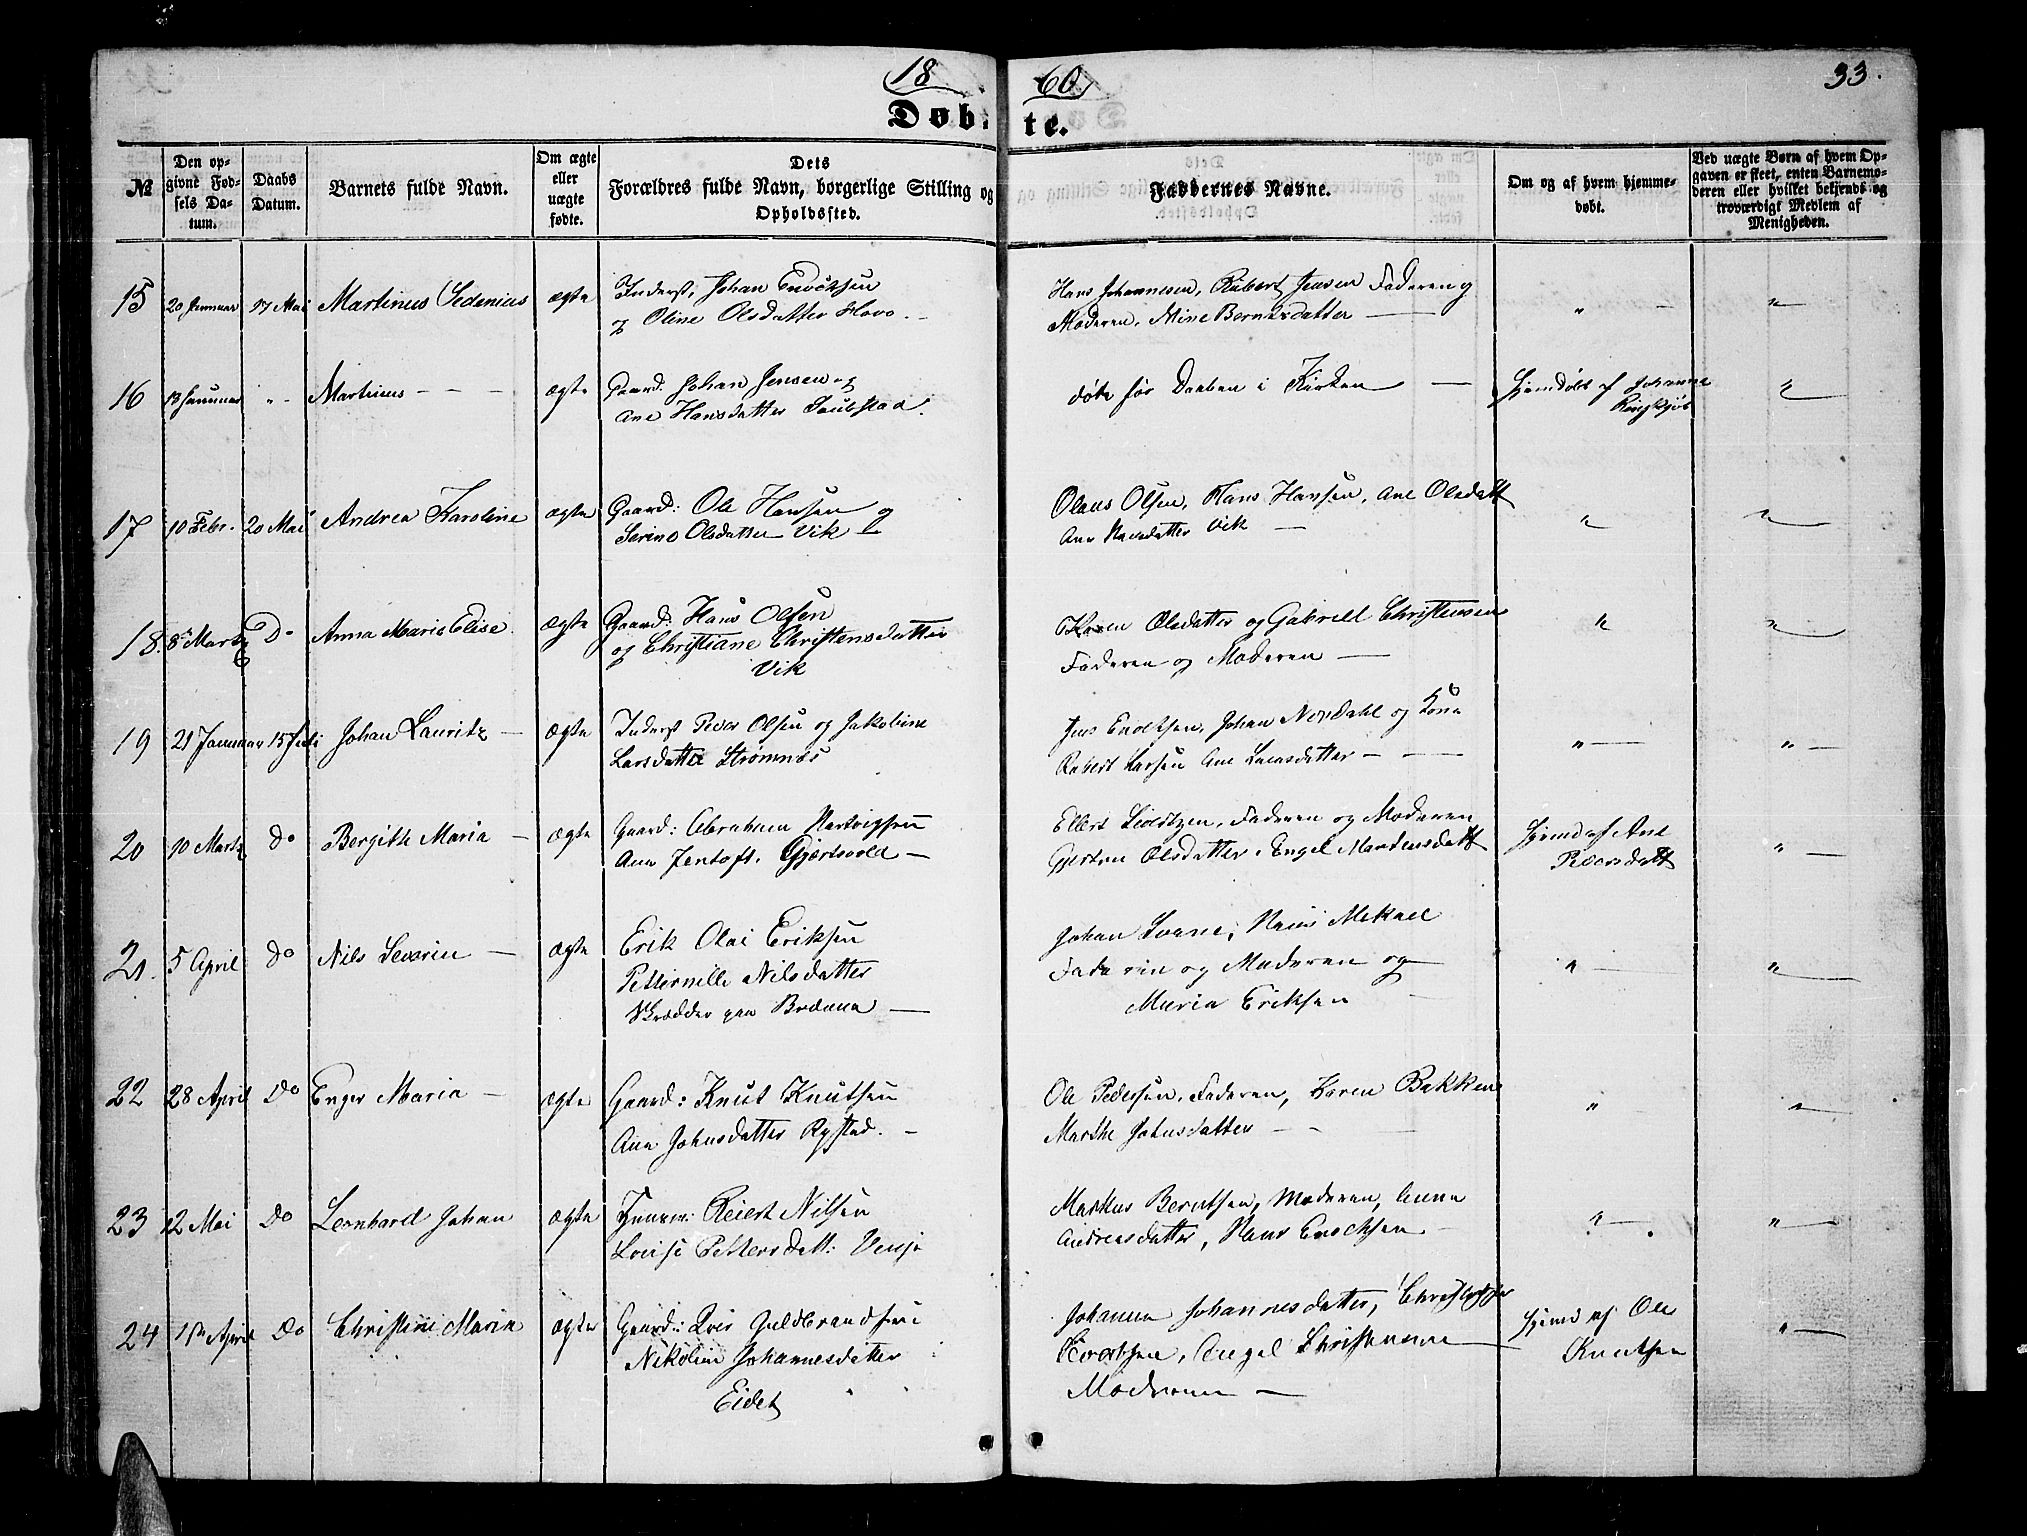 18 60 33.
Døbte.
№
Den opgivne Fødsels Datum.
Daabs Datum.
Barnets fulde Navn.
Om ægte eller uægte fødte.
Dets Forældres fulde Navn, borgerlige Stilling og Opholdssted.
Faddernes Navne.
Om og af hvem hjemmedøbt.
Ved uægte Børn af hvem Opgaven er skeet, enten Barnemoderen eller hvilket bekjendt og troværdigt Medlem af Menigheden.
15 20 Januar 17 Mai Martinus Sedenius ægte Inderst; Johan Enocksen
og Oline Olsdatter Hovo. –
Hans Johannesen, Robert Jensen Faderen og
Moderen, Mine Berntsdatter — " "
16 13 Januar " Martinus – – – ægte Gaard. Johan Jensen og
Ane Hansdatter Saulstad.
døde før Daaben i Kirken — Hjemdøbt af Johanna
Ringkjøb "
17 10 Febr. 20 Mai Andrea Karoline ægte Gaard: Ole Hansen og
Serine Olsdatter Vik
Olaus Olsen, Hans Hansen, Ane Olsdatt
Ane Hansdatter Vik — " "
18. 8 Marts Do Anna Marie Elise. ægte Gaard: Hans Olsen
og Christiane Christensdatter
Vik
Karen Olsdatter og Gabriell Christensen
Faderen og Moderen — " "
19 21 Januar 15 Juli Johan Lauritz – ægte Inderst Peder Olsen og Jakobine
Larsdatter Strømnes
Jens Enoksen, Johan Nordahl og Kone
Robert Larsen Ane Larsdatter — " — " –
20 10 Marts do Bergith Maria – ægte Gaard: Abraham Hartvigsen
Ane Jentoft. Gjertsvold —
Ellert , Faderen og Moderen
Gjertru Olsdatter, Engel Mortensdatt
Hjemd af Ane
Pedersdatt " —
21. 5 April do Nils Severin — ægte Erik Olai Eriksen
Petternille Nilsdatter
Skrædder paa —
Johan , Hans Mekael
Faderen og Moderen og
Maria Eriksen " — "
22 28 April Do Enger Maria – ægte Gaard: Knut Knutsen
Ane Johnsdatter Rystad. –
Ole Pedersen, Faderen, Karen Bakken
Marthe Johnsdatter – – " "
23 12 Mai Do Leonhard Johan ægte Reiert Nilsen
Lovise Pettersdatt:
Markus Berntsen, Moderen, Anna
Andreasdatter, Hans Enocksen " — " —
24 April Do Christine Maria ægte Gaard: Guldbrandsen
Nikoline Johannesdatter
Eidet
Johanna Johannesdatter,
, Engel
Moderen —
Hjemd af Ole
Knutsen " —